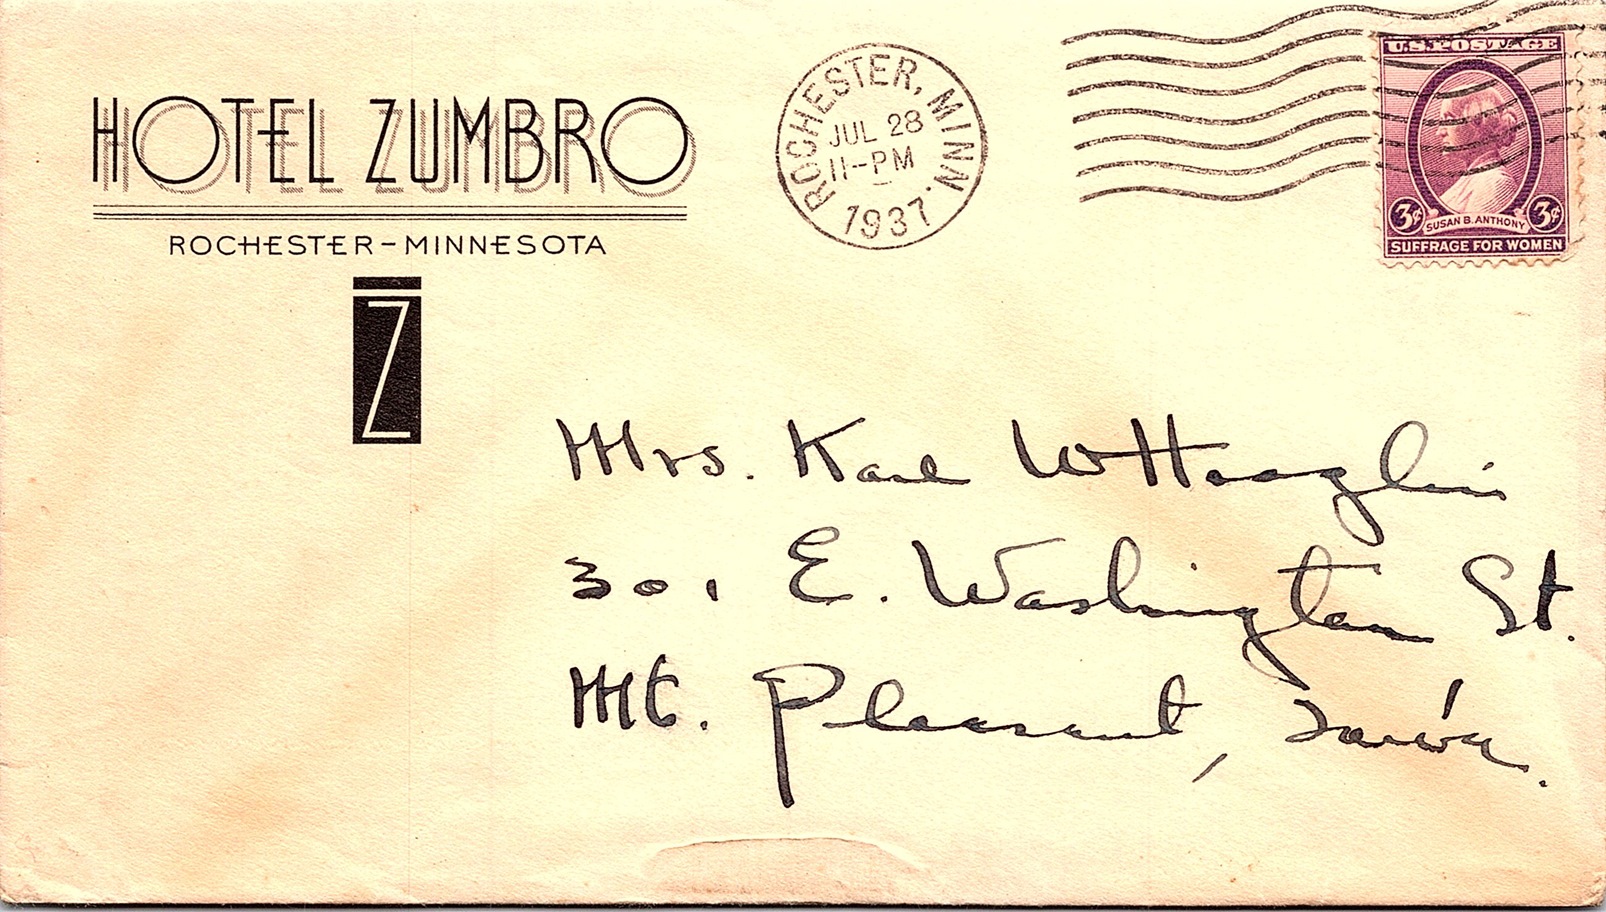 HOTEL ZUMBRO
ROCHESTER-MINNESOTA
Z
ROCHESTER, MINN.
JUL 28
11-PM
1937
U.S. POSTAGE
3¢ SUSAN B. ANTHONY 3¢
SUFFRAGE FOR WOMEN
Mrs. Karl W Hoaglin
301 E. Washington St.
Mt. Pleasant, Iowa.